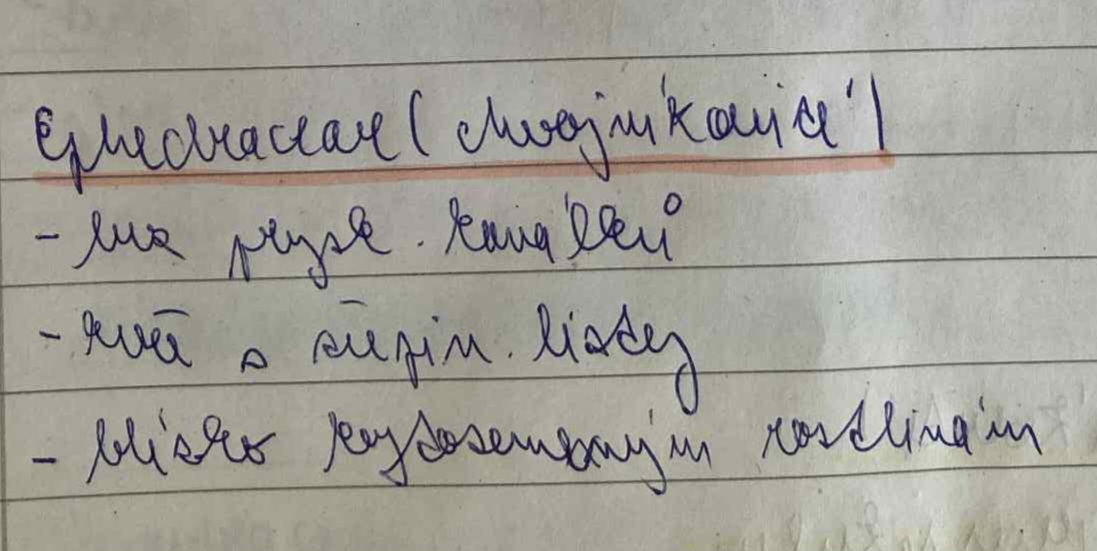 Ephedraceae (chvojníkovité)
- bez prysk. kanálků
- květ s šupin. lístky
- blízko krytosemenným rostlinám